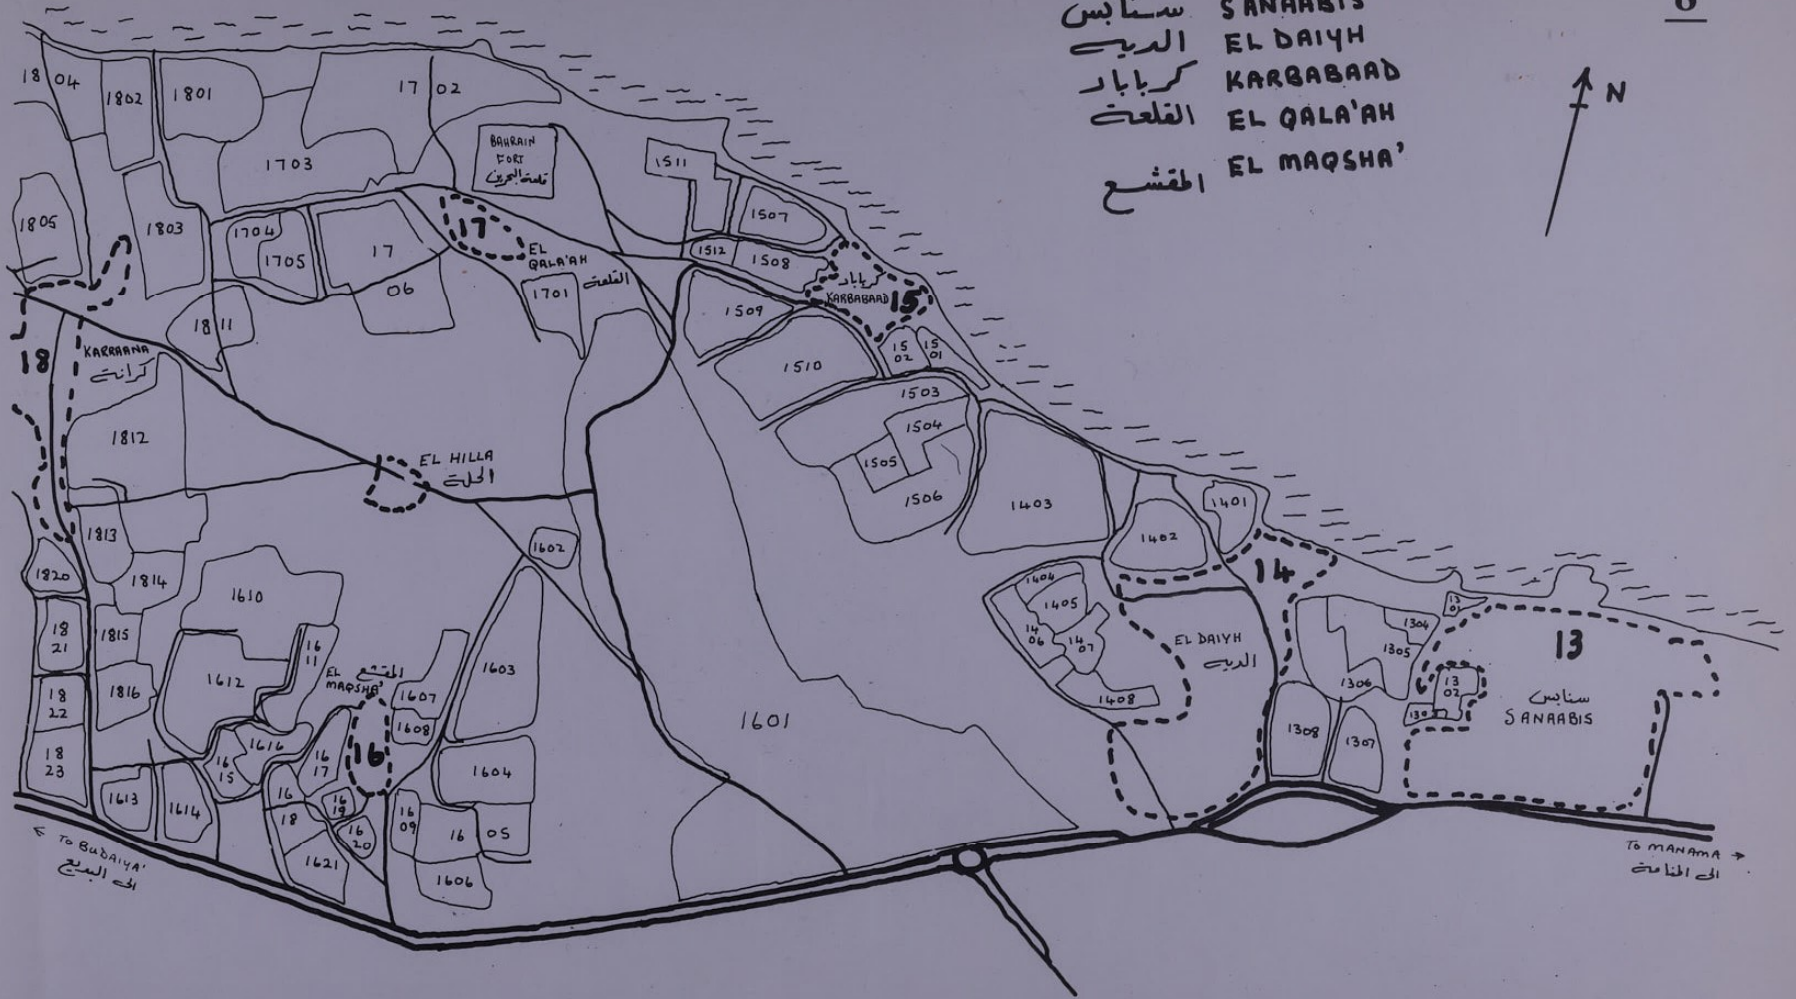 سنابس SANAABIS
6
الديه EL DAIYH
كرباباد KARBABAAD
القلعة EL QALA'AH
المقشع EL MAQSHA'
N
1804
1802
1801
1702
1703
BAHRAIN
FORT
قلعة البحرين
1511
1805
1803
1704
1705
1706
17
EL
QALA'AH
القلعة
1701
1507
1512
1508
كرباباد
KARBABAAD
15
1811
1509
1502
1501
1510
18
KARRAANA
كرانة
1503
1504
1505
1506
1812
EL HILLA
الحلة
1403
1401
1402
1813
1602
14
1820
1814
1610
1404
1405
1406
1407
1408
EL DAIYH
الديه
1301
1304
1305
1306
13
1302
سنابس
SANAABIS
1308
1307
1821
1815
1611
EL
MAQSHA'
المقشع
1603
1822
1816
1612
1607
1608
1601
1616
1615
1617
16
1604
1823
1613
1614
1618
1619
1620
1609
1605
1621
1606
← TO BUDAIYA'
الى البديع
TO MANAMA →
الى المنامة